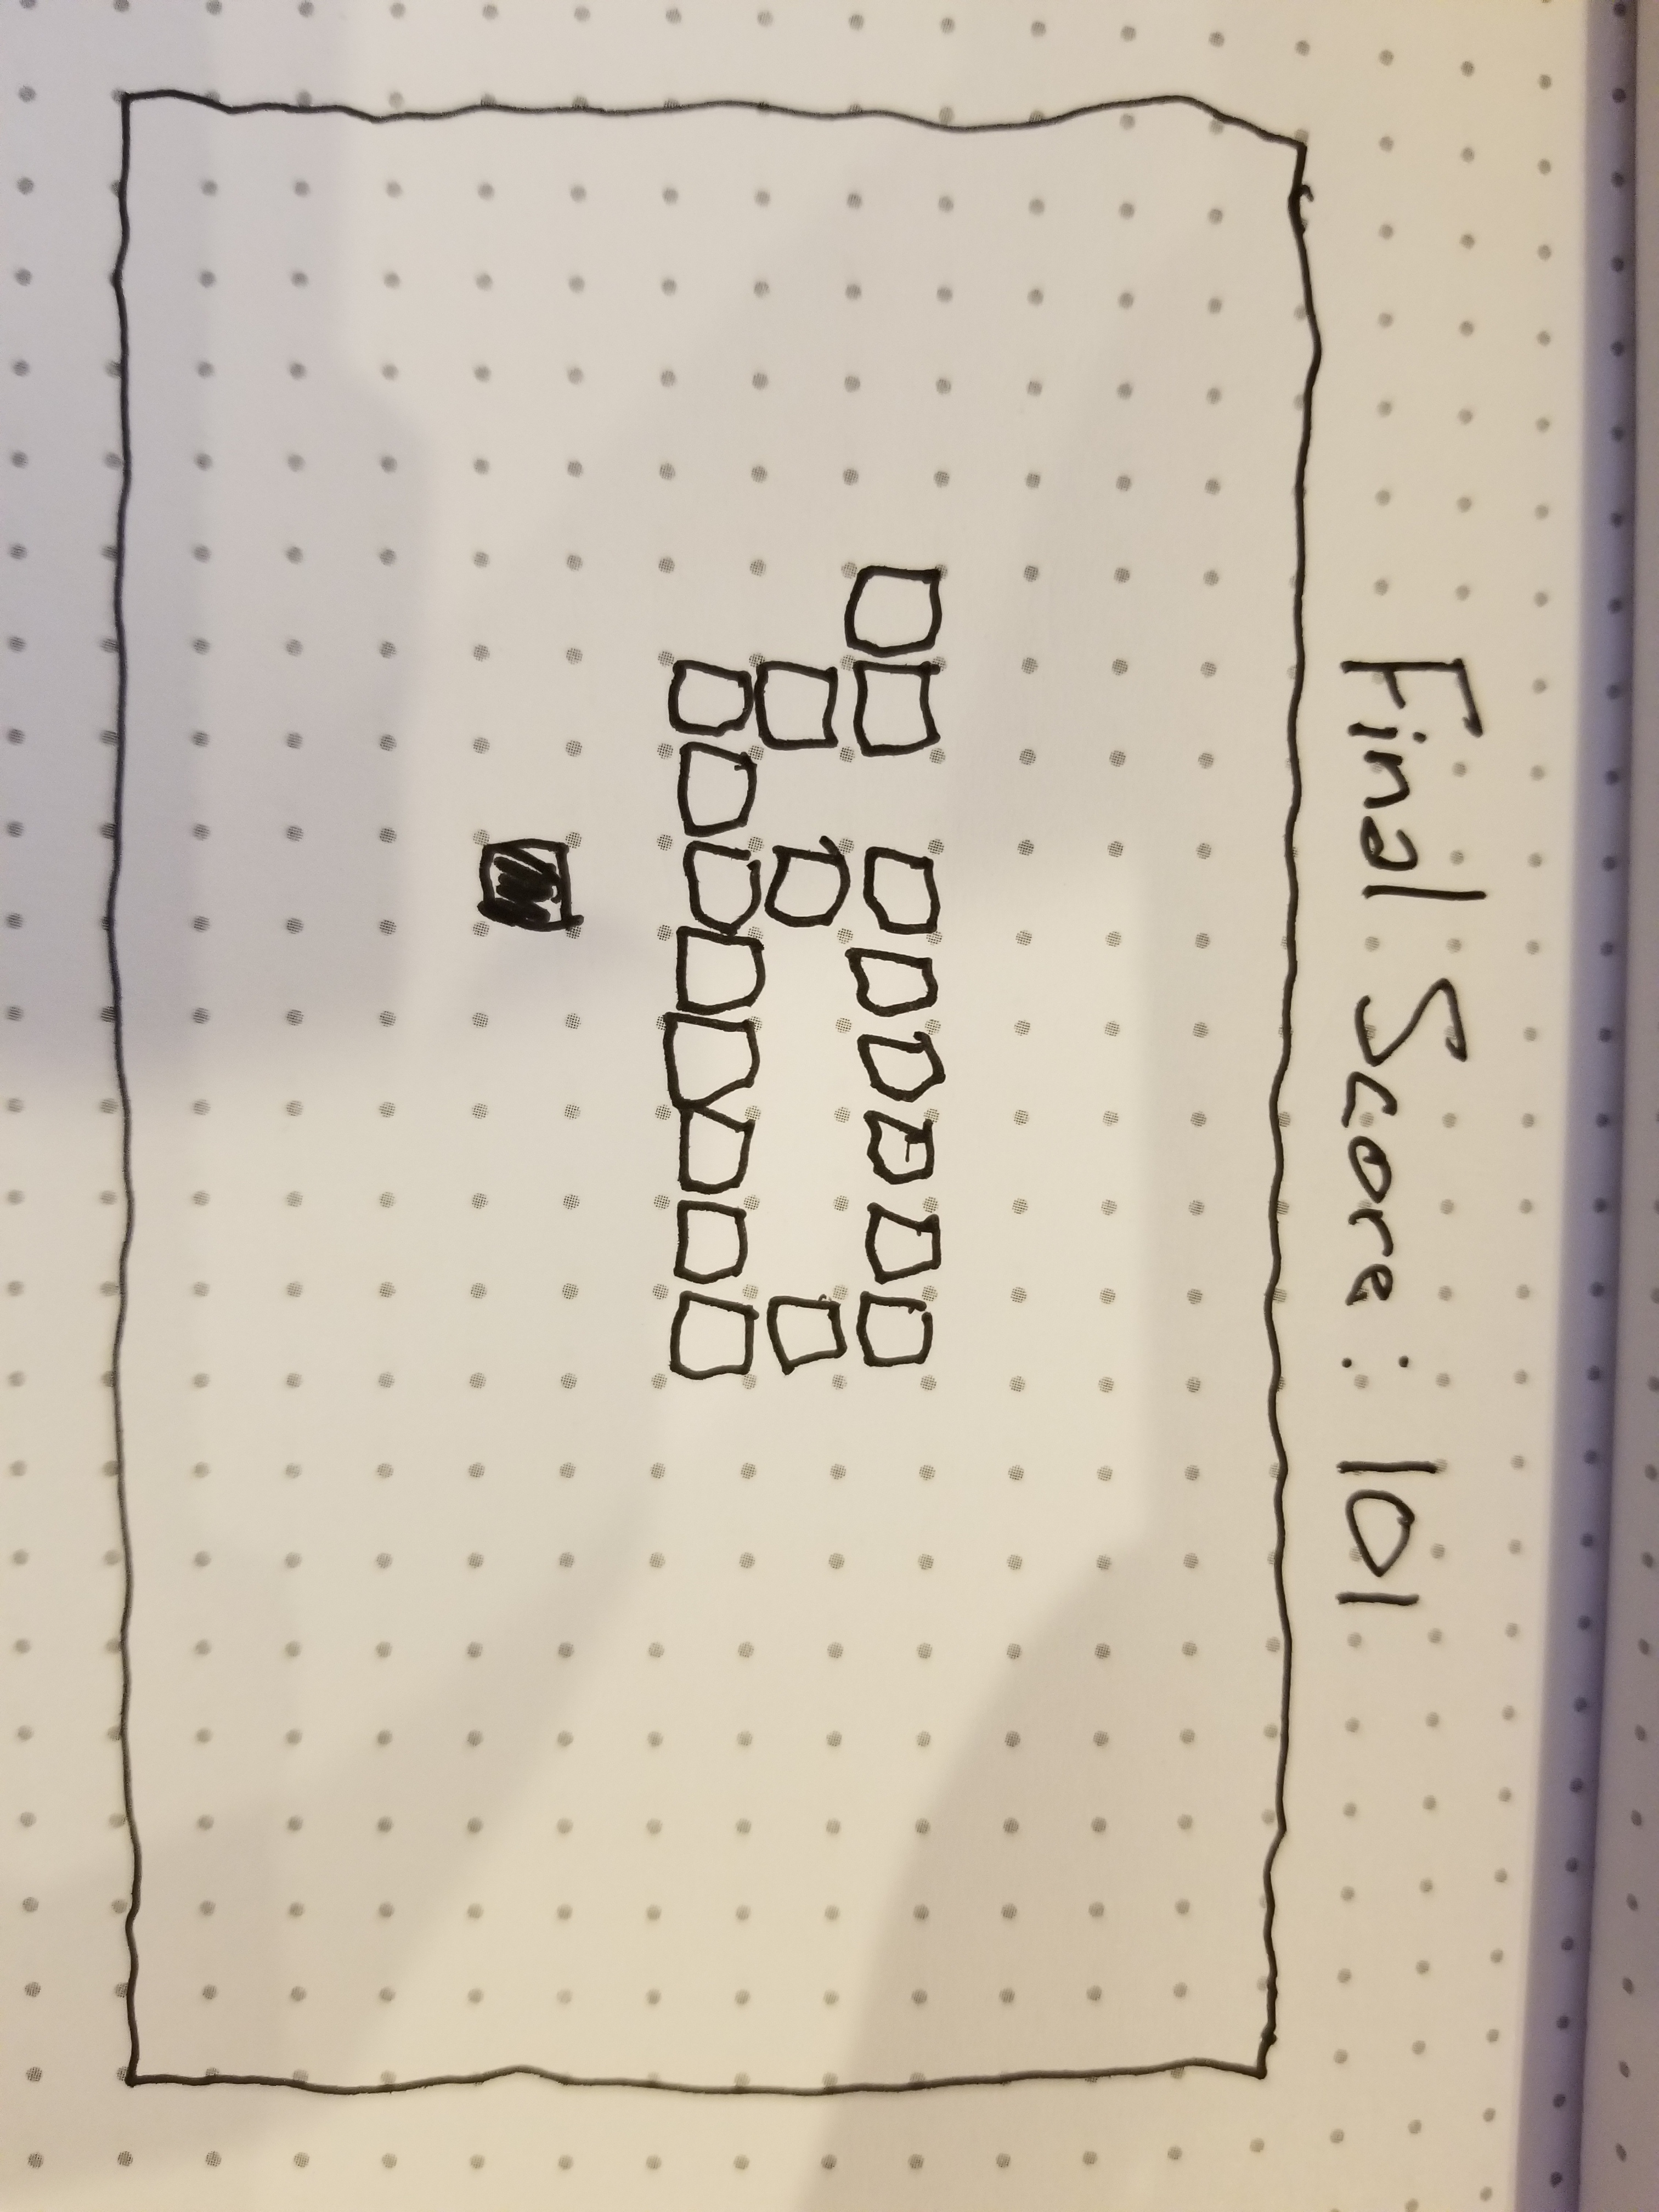 Final Score : 101